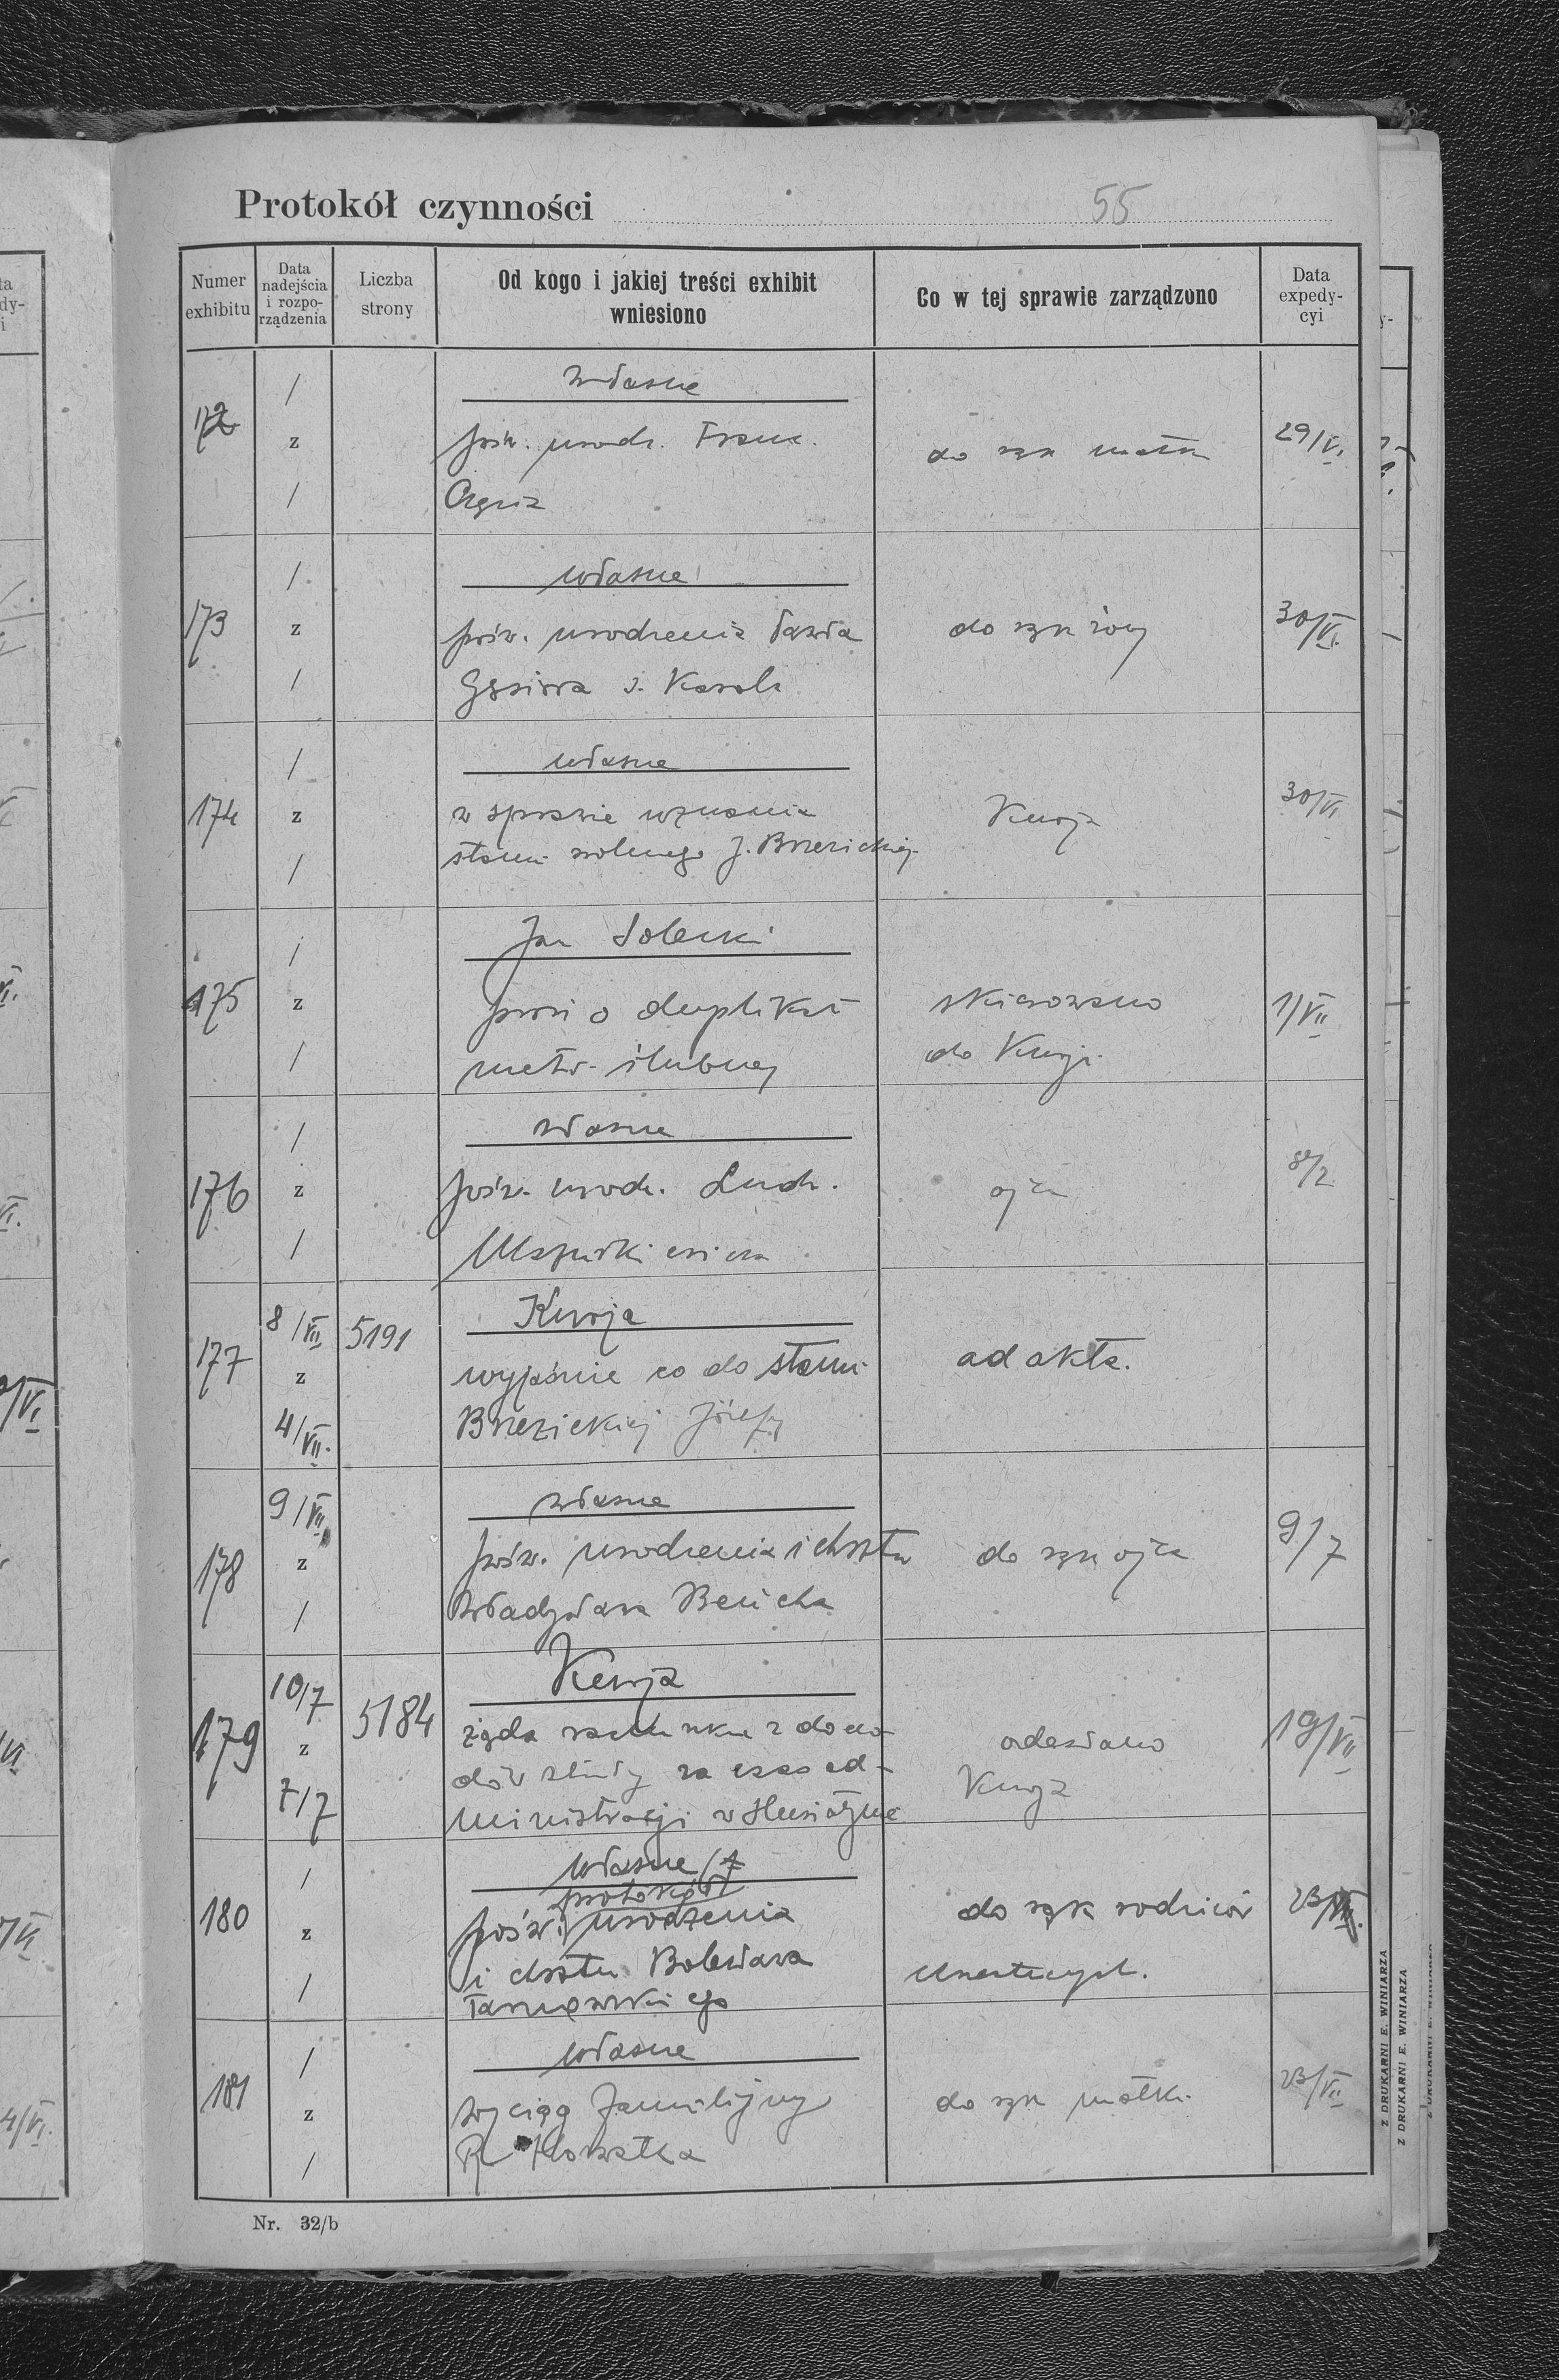 Protokół czynności 55
Numer exhibitu
Data nadejścia i rozporządzenia
Liczba strony
Od kogo i jakiej treści exhibit wniesiono
Co w tej sprawie zarządzono
Data expedycyi
172
/ z /
własne
pośw. urodz. Franc.
do rąk matki
29/VI.
173
/ z /
własne
pośw. urodzenia Pawła
Gąsiora s. Karola
do rąk żony
30/VI.
174
/ z /
własne
w sprawie uznania
stanu wolnego J. Brzezickiej
Kurja
30/VI
175
/ z /
Jan Solecki
prosi o duplikat
metr. ślubnej
skierowano
do Kurji.
1/VII
176
/ z /
własne
pośw. urodz. Ludw.
ojca
177
8/VII z 4/VII.
5191
Kurja
wyjaśnie co do stanu
Brzezickiej Józefy
ad akta.
178
9/VII z /
własne
pośw. urodzenia i chrztu
Władysława Bericha
do rąk ojca
9/7
179
10/7 z 7/7
5184
Kurja
żąda rachunku z docho-
dów za czas ad-
ministracji w Husiatynie
odesłano
Kurja
19/VII
180
/ z /
własne /4
protokół
pośw. urodzenia
i chrztu Bolesława
Tarnowskiego
do rąk rodziców
chrzestnych.
23/VII.
181
/ z /
własne
wyciąg familijny
do rąk matki
23/VII
Nr. 32/b
Z DRUKARNI E. WINIARZA
Z DRUKARNI E. WINIARZA